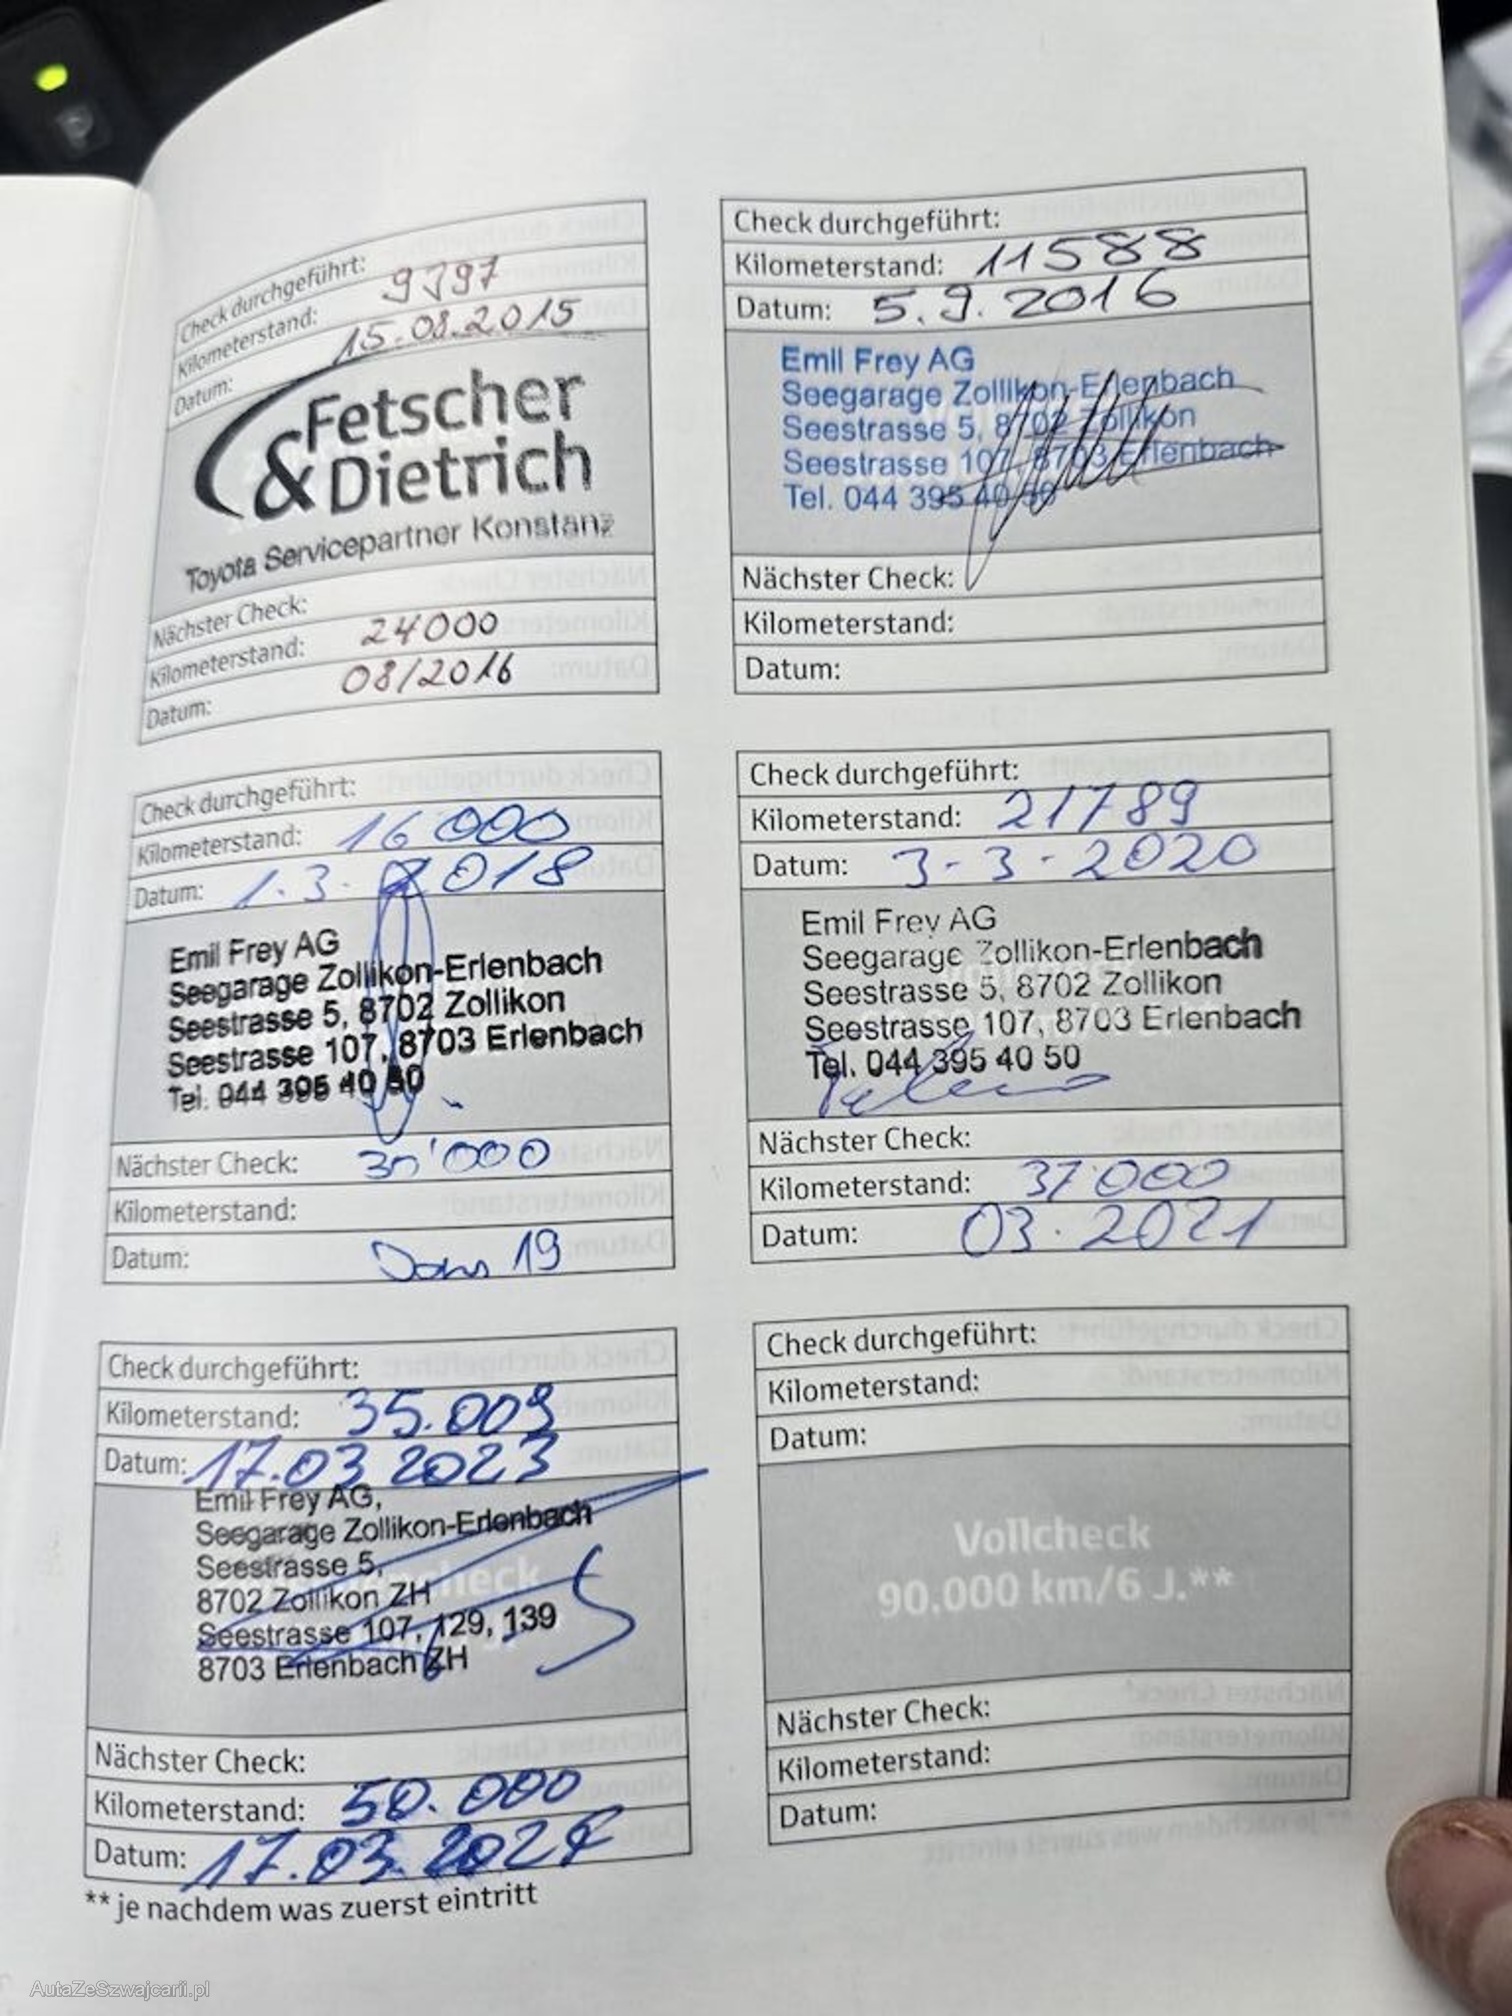 Check durchgeführt:
Kilometerstand: 9797
Datum: 15.08.2015
Fetscher
& Dietrich
Toyota Servicepartner Konstanz
Nächster Check:
Kilometerstand: 24000
Datum: 08/2016
Check durchgeführt:
Kilometerstand: 11588
Datum: 5.9.2016
Emil Frey AG
Seegarage Zollikon-Erlenbach
Seestrasse 5, 8702 Zollikon
Seestrasse 107, 8703 Erlenbach
Tel. 044 395 40 50
Nächster Check:
Kilometerstand:
Datum:
Check durchgeführt:
Kilometerstand: 16000
Datum: 1.3.2018
Emil Frey AG
Seegarage Zollikon-Erlenbach
Seestrasse 5, 8702 Zollikon
Seestrasse 107, 8703 Erlenbach
Tel. 044 395 40 50
Nächster Check: 30'000
Kilometerstand:
Datum: 19
Check durchgeführt:
Kilometerstand: 21789
Datum: 3-3-2020
Emil Frey AG
Seegarage Zollikon-Erlenbach
Seestrasse 5, 8702 Zollikon
Seestrasse 107, 8703 Erlenbach
Tel. 044 395 40 50
Nächster Check:
Kilometerstand: 37000
Datum: 03.2021
Check durchgeführt:
Kilometerstand: 35.009
Datum: 17.03.2023
Emil Frey AG,
Seegarage Zollikon-Erlenbach
Seestrasse 5,
8702 Zollikon ZH
Seestrasse 107, 129, 139
8703 Erlenbach ZH
Nächster Check:
Kilometerstand: 50.000
Datum: 17.03.2024
Check durchgeführt:
Kilometerstand:
Datum:
Vollcheck
90.000 km/6 J.**
Nächster Check:
Kilometerstand:
Datum:
** je nachdem was zuerst eintritt
AutaZeSzwajcarii.pl